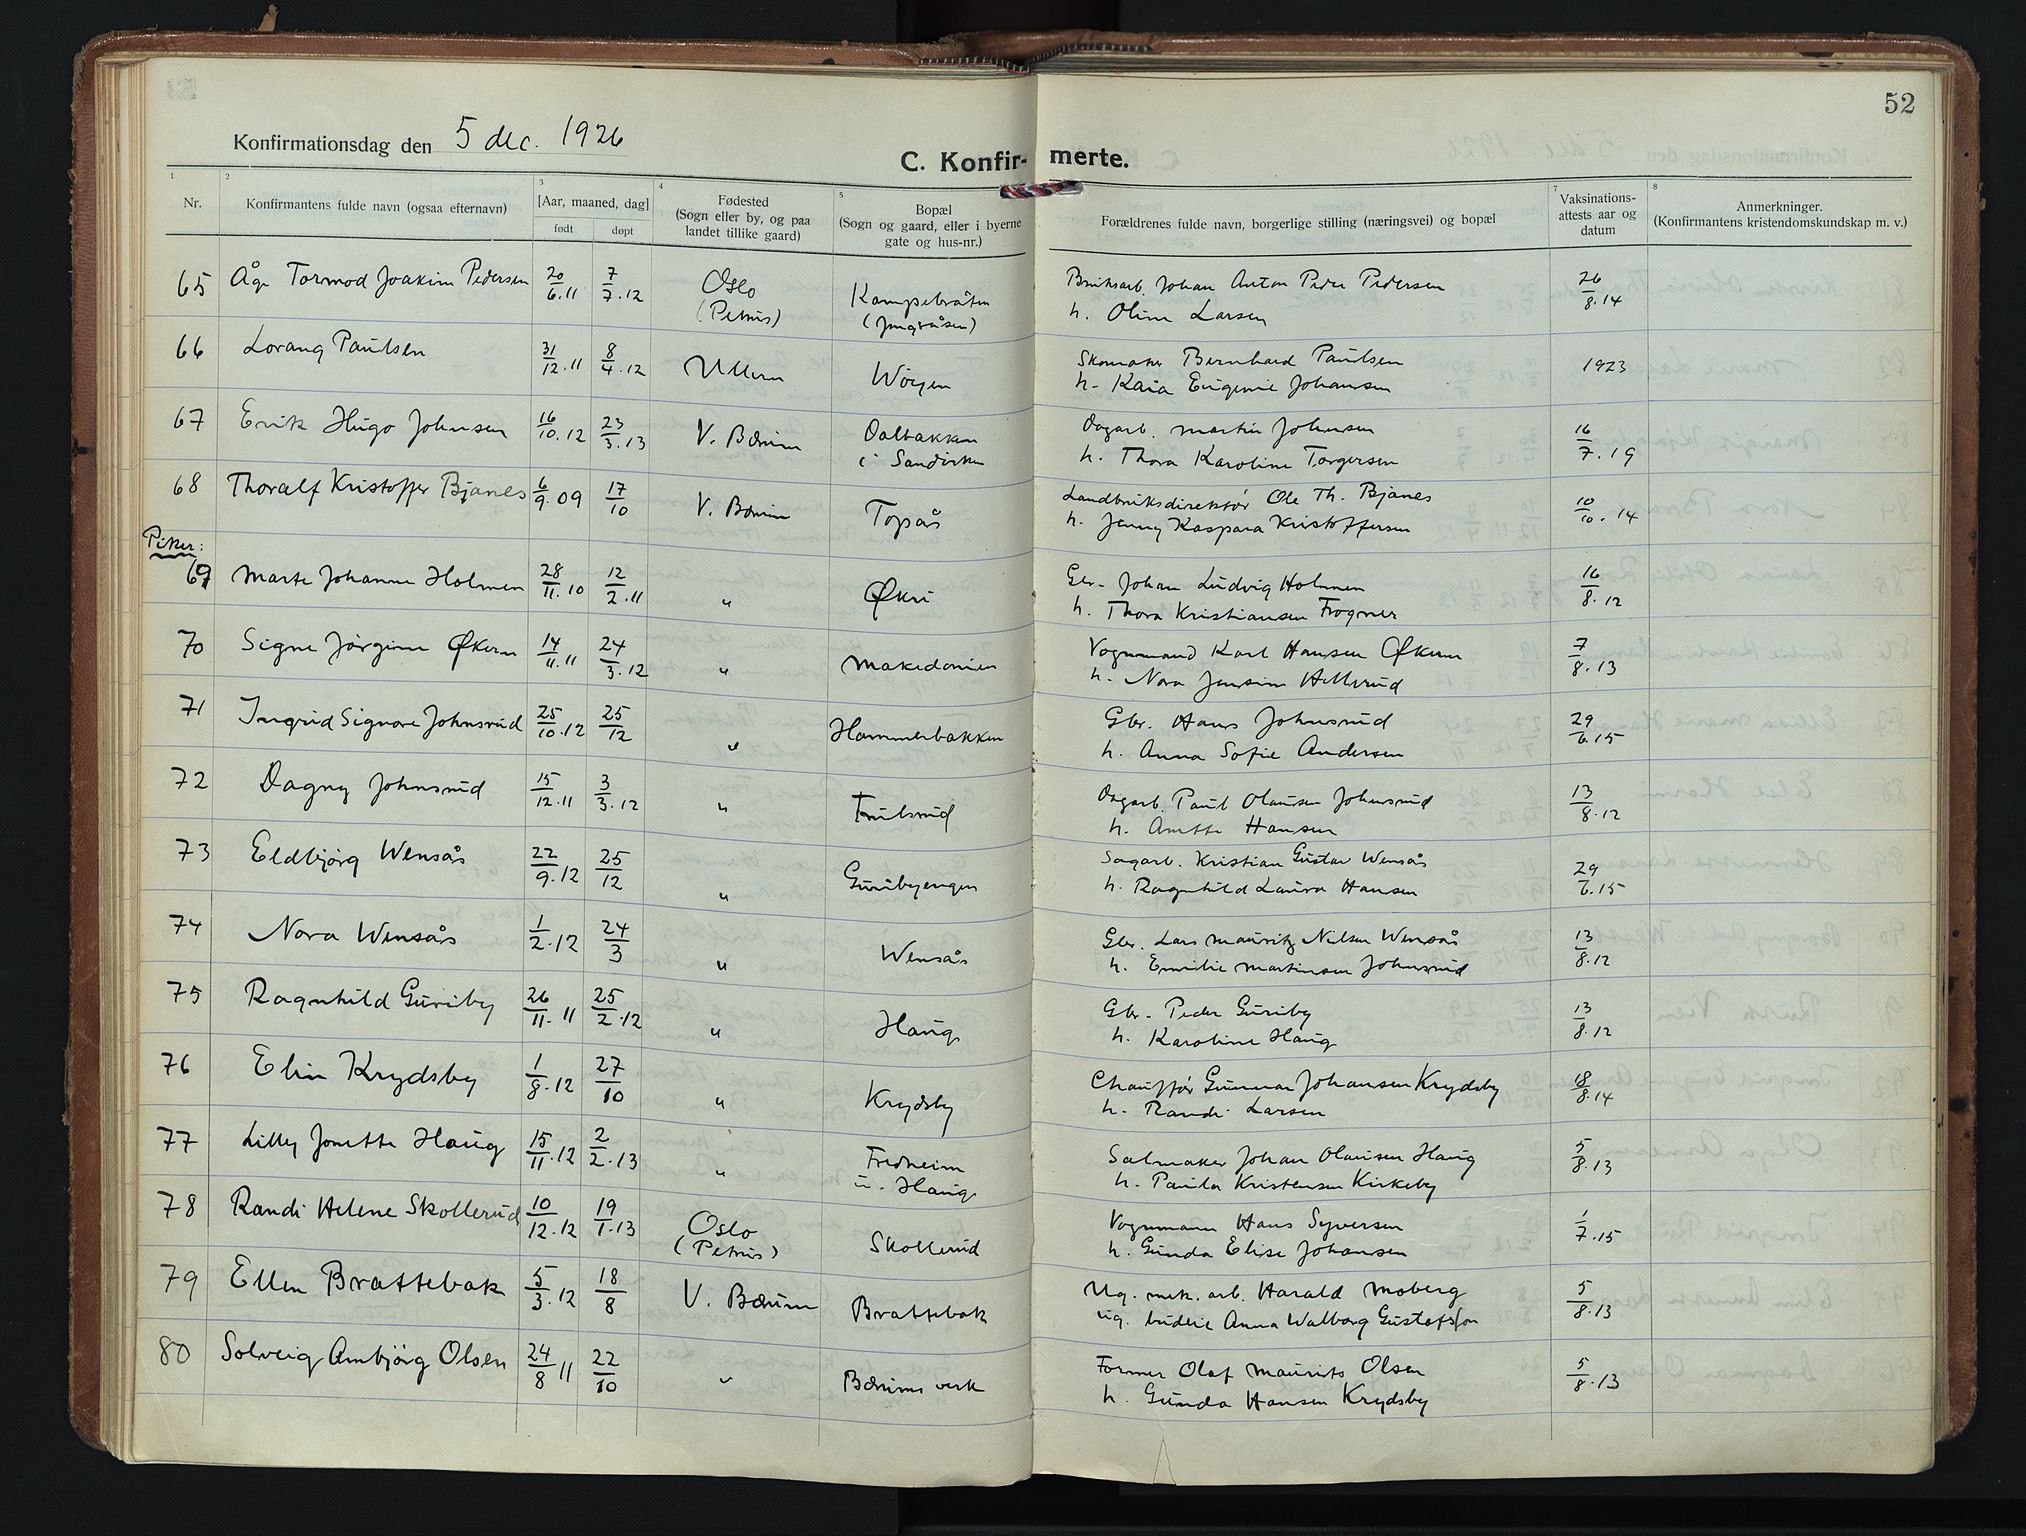 52
Konfirmationsdag den 5 dec. 1926
C. Konfir- merte.
1 2 3 4 5 7 8
Nr.
Konfirmantens fulde navn (ogsaa efternavn)
[Aar, maaned, dag]
født døpt
Fødested
(Sogn eller by, og paa
landet tillike gaard)
Bopæl
(Sogn og gaard, eller i byerne
gate og hus-nr.)
Forældrenes fulde navn, borgerlige stilling (næringsvei) og bopæl
Vaksinations-
attests aar og
datum
Anmerkninger.
(Konfirmantens kristendomskundskap m. v.)
65 Åge Tormod Joakim Pedersen 20/6.11 7/7.12 Oslo Kampebråten Bruksarb. Johan Anton Peder Pedersen 26/8.14
(Petrus) (Jongsåsen) h. Oline Larsen
66 Lorang Paulsen 31/12.11 8/4.12 Ullern Wøyen Skomaker Bernhard Paulsen 1923
h. Kaia Eugenie Johansen
67 Erik Hugo Johnsen 16/10.12 23/3.13 V. Bærum Dalbakken Dagarb. Martin Johnsen 16/7.19
i Sandviken h. Thora Karoline Torgersen
68 Thoralf Kristoffer Bjanes 6/9.09 17/10 V. Bærum Topås Landbruksdirektør Ole Th. Bjanes 10/10.14
h. Jenny Kaspara Kristoffersen
Piker:
69 Marte Johanne Holmen 28/11.10 12/2.11 " Økri Gbr. Johan Ludvig Holmen 16/8.12
h. Thora Kristiansen Frogner
70 Signe Jørgine Økern 14/11.11 24/3.12 " Makedonien Vognmand Karl Hansen Økern 7/8.13
h. Nora Jensine Hellerud
71 Ingrid Signore Johnsrud 25/10.12 25/12 " Hammerbakken Gbr. Hans Johnsrud 29/6.15
h. Anna Sofie Andersen
72 Dagny Johnsrud 15/12.11 3/3.12 " Frulsrud Dagarb. Paul Olausen Johnsrud 13/8.12
h. Anette Hansen
73 Eldbjørg Wensås 22/9.12 25/12 " Guribyengen Sagarb. Kristian Gustav Wensås 29/6.15
h. Ragnhild Laura Hansen
74 Nora Wensås 1/2.12 24/3 " Wensås Gbr. Lars Mauritz Nilsen Wensås 13/8.12
h. Emilie Martinsen Johnsrud
75 Ragnhild Guriby 26/11.11 25/2.12 " Haug Gbr. Peder Guriby 13/8.12
h. Karoline Haug
76 Elin Krydsby 1/8.12 27/10 " Krydsby Chauffør Gunnar Johansen Krydsby 18/8.14
h. Randi Larsen
77 Lilly Jonette Haug 15/11.12 2/2.13 " Fredheim Salmaker Johan Olausen Haug 5/8.13
u. Haug h. Paula Kristensen Kirkeby
78 Randi Helene Skollerud 10/12.12 19/1.13 Oslo Skollerud Vognmann Hans Syversen 1/7.15
(Petrus) h. Gunda Elise Johansen
79 Ellen Brattebak 5/3.12 18/8 V. Bærum Brattebak Ug. mek. arb. Harald Moberg 5/8.13
ug. budeie Anna Walborg Gustafsson
80 Solveig Ambjørg Olsen 24/8 11 22/10 " Bærums verk Former Olaf Maurits Olsen 5/8.13
h. Gunda Hansen Krydsby